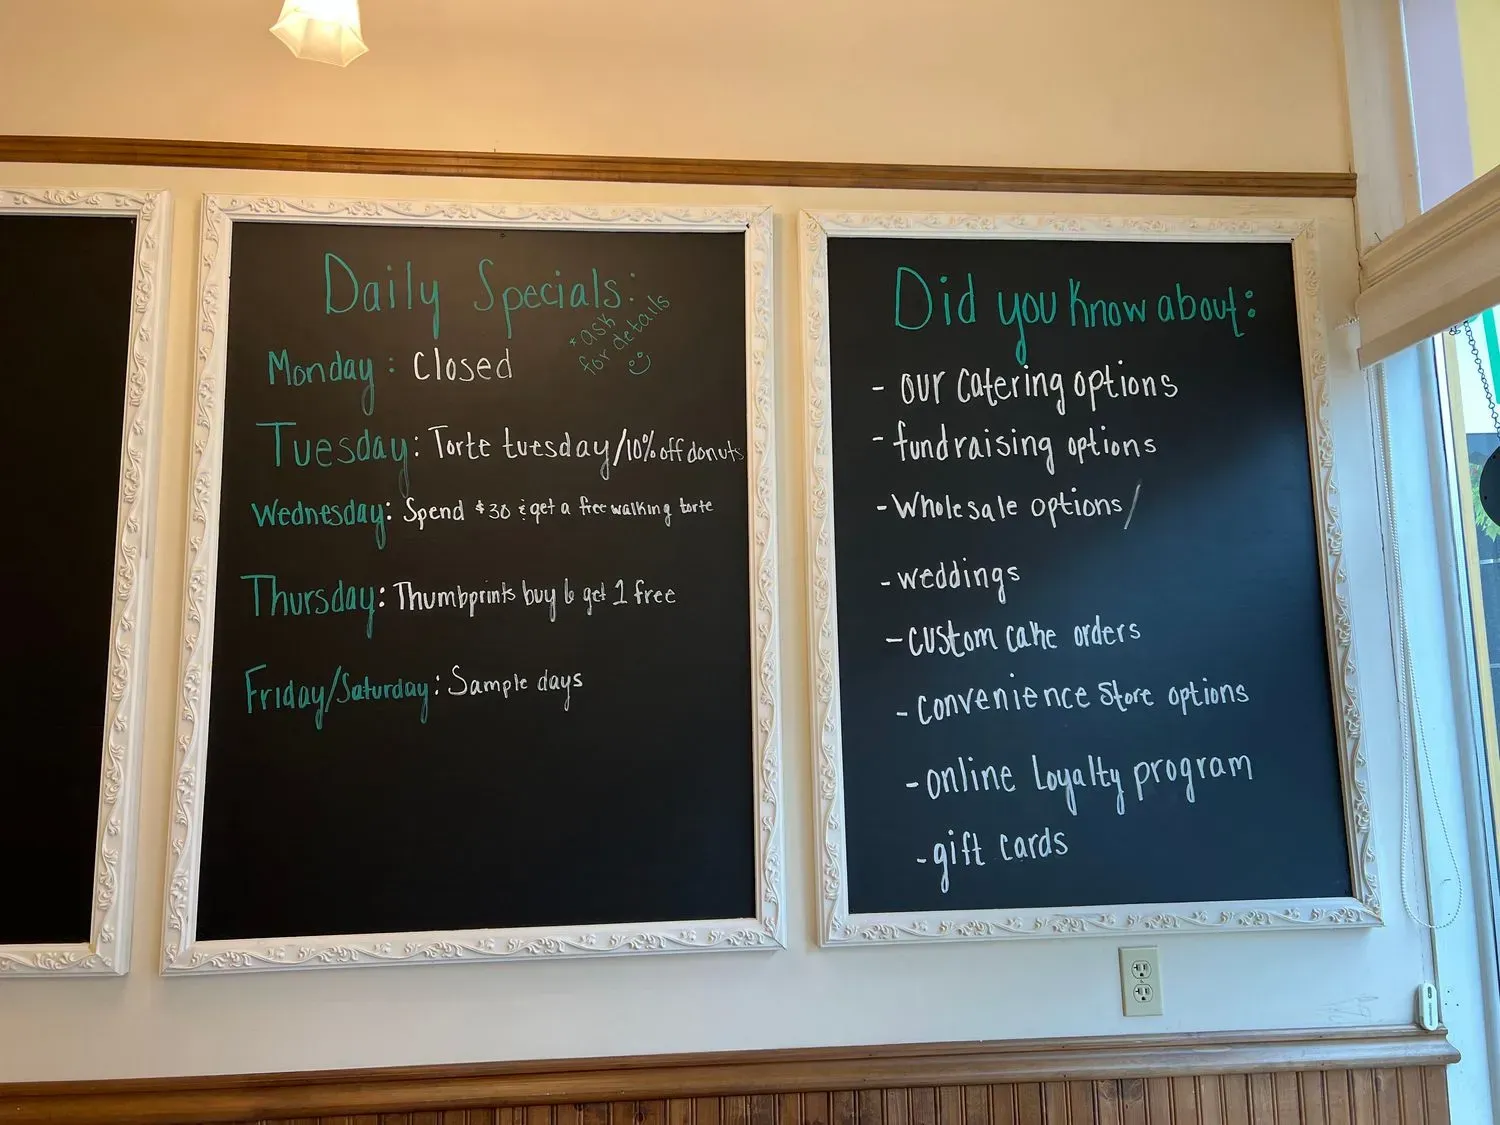 Daily Specials:
* ask
for details
Monday: Closed
Tuesday: Torte tuesday/10% off donuts
Wednesday: Spend $30 & get a free walking torte
Thursday: Thumbprints buy 6 get 1 free
Friday/Saturday: Sample days
Did you know about:
- our catering options
- fundraising options
- Wholesale options/
- weddings
- custom cake orders
- convenience store options
- online loyalty program
- gift cards